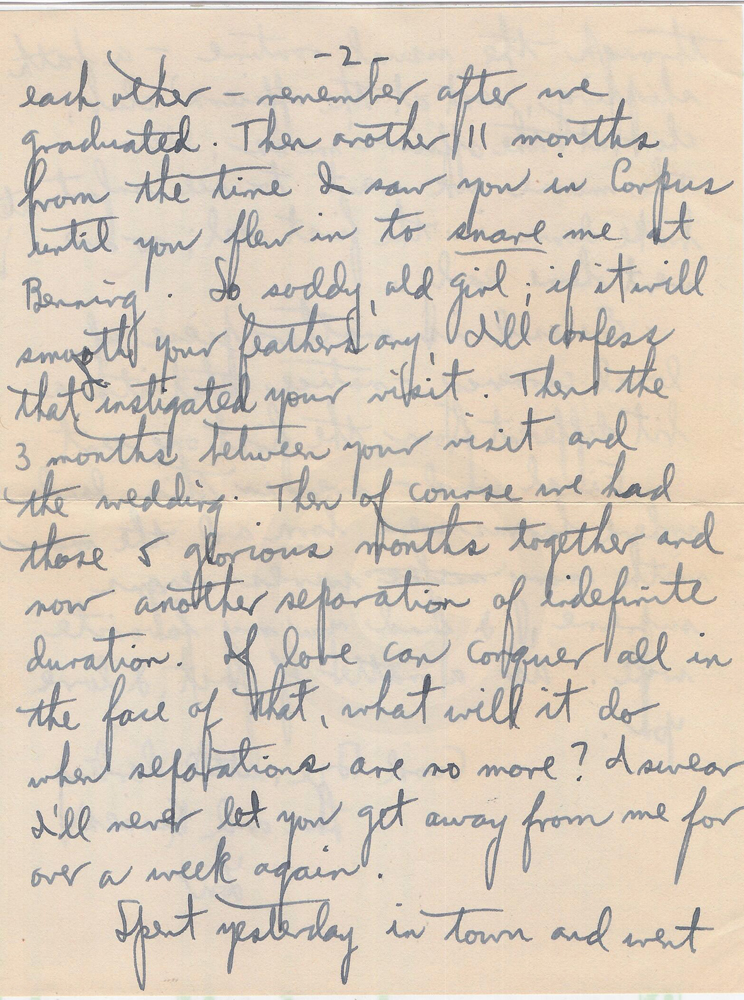 -2-
each other – remember after we
graduated. Then another 11 months
from the time I saw you in Corpus
until you flew in to snare me at
Benning. So soddy, old girl; if it will
smooth your feathers any, I'll confess
that I instigated your visit. Then the
3 months between your visit and
the wedding. Then of course we had
those 5 glorious months together and
now another separation of indefinite
duration. If love can conquer all in
the face of that, what will it do
when separations are no more? I swear
I'll never let you get away from me for
over a week again.
Spent yesterday in town and went